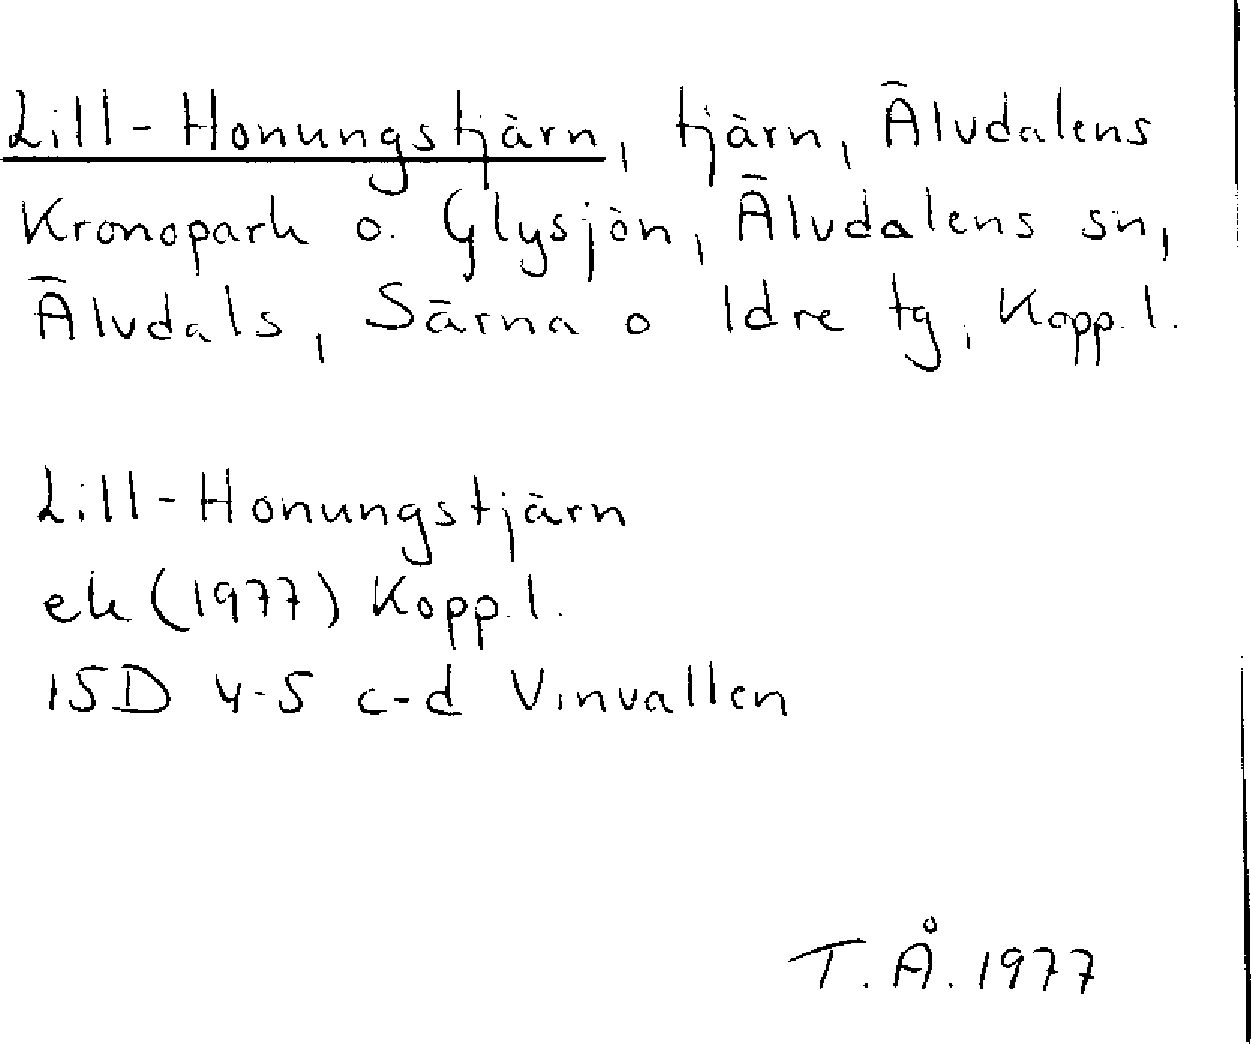 Lill-Honungstjärn, tjärn, Älvdalens
Kronopark o. Glysjön, Älvdalens sn,
Älvdals, Särna o Idre tg, Kopp. l.
Lill-Honungstjärn
ek (1977) Kopp. l.
15D 4-5 c-d Vinvallen
T. Å. 1977